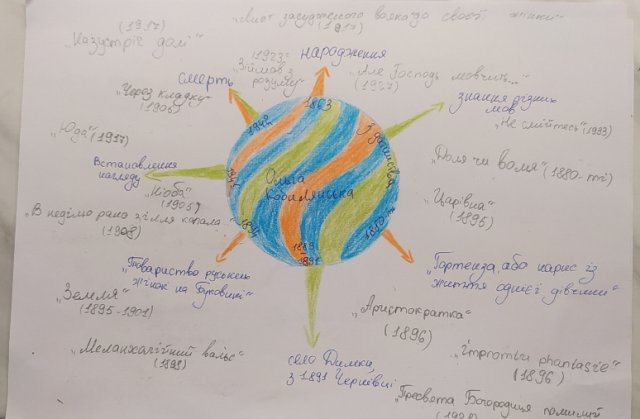 (1917)
„Назустріч долі"
„Лист засудженого вояка до своєї жінки"
(1917)
(1923)
„Зійшов з розуму"
народження
смерть
„Через кладку"
(1905)
„Але Господь мовчить..."
(1927)
знання різних мов
„Не смійтесь" (1933)
„Юда" (1917)
Встановлення нагляду
1942
1863
1943
Ольга
Кобилянська
„Доля чи воля" (1880-ті)
„Ніоба"
(1905)
„Царівна"
(1895)
„В неділю рано зілля копала"
(1908)
1894
1880-ті
1889
1891
„Товариство руських жінок на Буковині"
„Гортенза, або нарис із
життя однієї дівчини"
„Земля"
(1895-1901)
„Аристократка"
(1896)
„Меланхолійний вальс"
(1898)
село Димки,
з 1891 Чернівці
„Impromtu phantasie"
(1896)
„Пресвята Богородиця помилуй